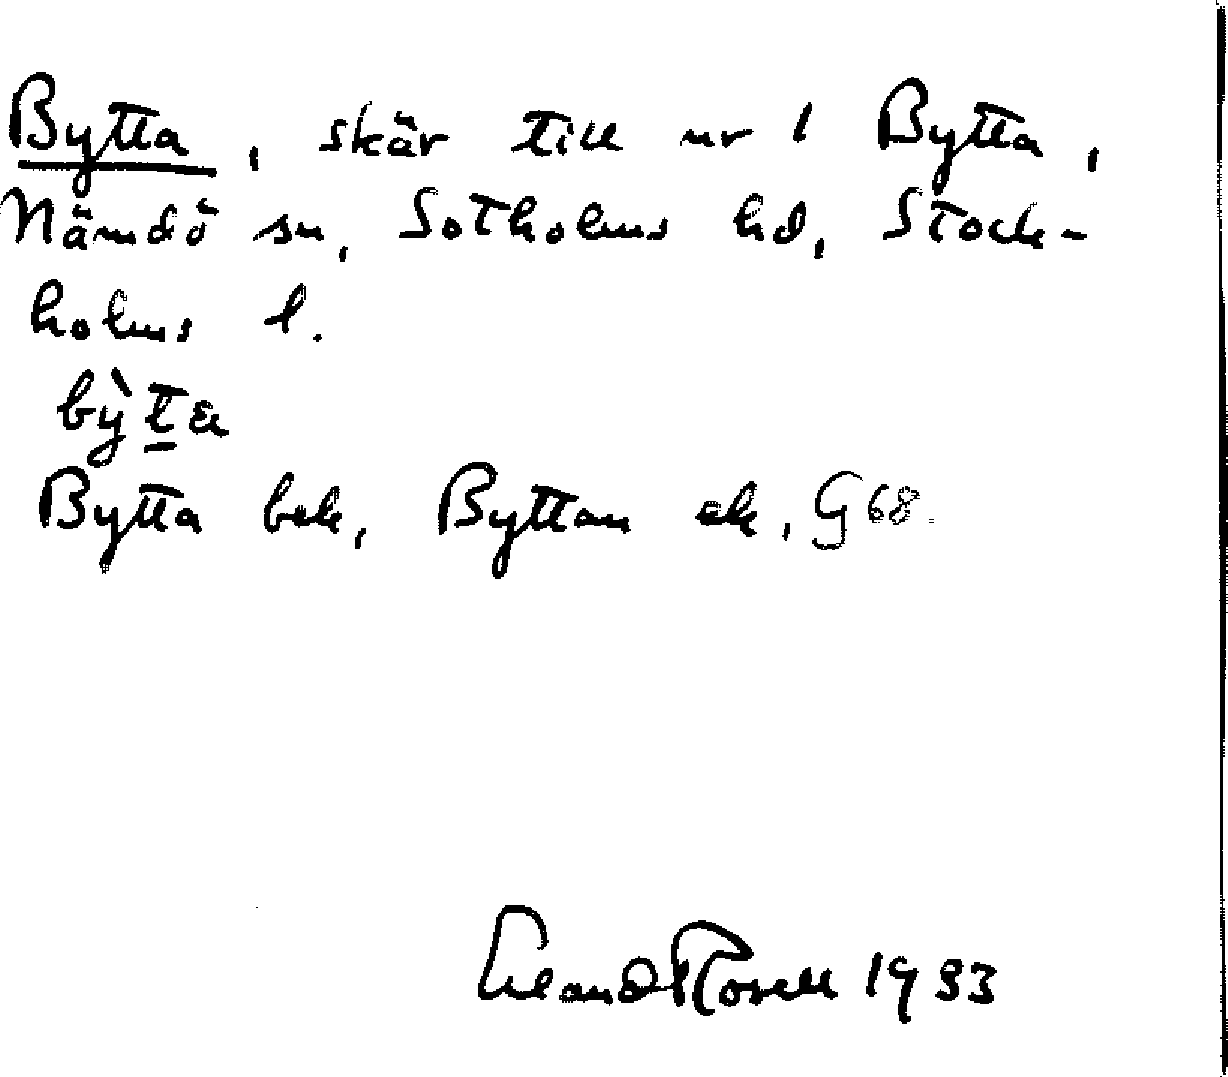 Bytta, skär till nr 1 Bytta,
Nämdö sn, Sotholms hd, Stock-
holms l.
bỳta
Bytta bek, Byttan ek, G 68.
Erland Rosell 1933